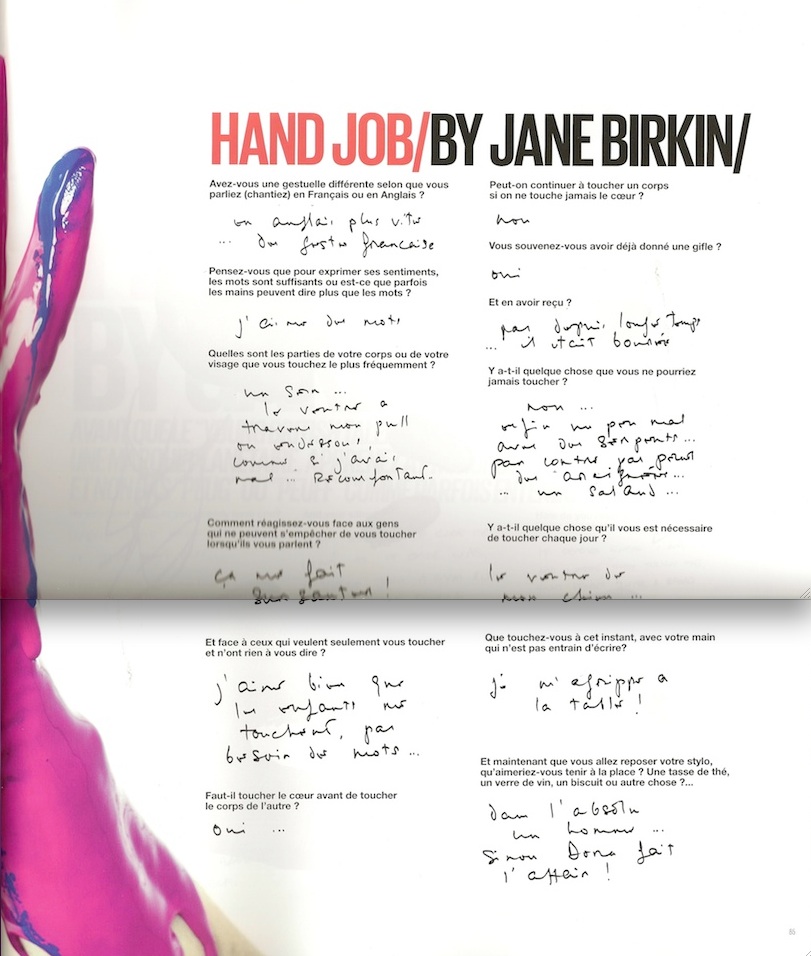 HAND JOB/BY JANE BIRKIN/
Avez-vous une gestuelle différente selon que vous
parliez (chantiez) en Français ou en Anglais ?
en anglais plus vite
... des gestes française
Pensez-vous que pour exprimer ses sentiments,
les mots sont suffisants ou est-ce que parfois
les mains peuvent dire plus que les mots ?
j'aime des mots
Quelles sont les parties de votre corps ou de votre
visage que vous touchez le plus fréquemment ?
un sein ...
le ventre a
travers mon pull
ou endessous,
comme si j'avais
mal ... Réconfortant.
Comment réagissez-vous face aux gens
qui ne peuvent s'empêcher de vous toucher
lorsqu'ils vous parlent ?
ça me fait
!
Et face à ceux qui veulent seulement vous toucher
et n'ont rien à vous dire ?
j'aime bien que
les enfants me
touchent, pas
besoin des mots ...
Faut-il toucher le cœur avant de toucher
le corps de l'autre ?
oui ...
Peut-on continuer à toucher un corps
si on ne touche jamais le cœur ?
non
Vous souvenez-vous avoir déjà donné une gifle ?
oui
Et en avoir reçu ?
pas depuis longtemps
... il était bourré
Y a-t-il quelque chose que vous ne pourriez
jamais toucher ?
non ...
enfin un peu mal
avec des serpents ...
par contre pas peur
des araignées ...
... un salaud ...
Y a-t-il quelque chose qu'il vous est nécessaire
de toucher chaque jour ?
le ventre de
mon chien ...
Que touchez-vous à cet instant, avec votre main
qui n'est pas entrain d'écrire?
je m'agrippe a
la table !
Et maintenant que vous allez reposer votre stylo,
qu'aimeriez-vous tenir à la place ? Une tasse de thé,
un verre de vin, un biscuit ou autre chose ?...
dans l'absolu
un homme ...
sinon Dora fait
l'affair !